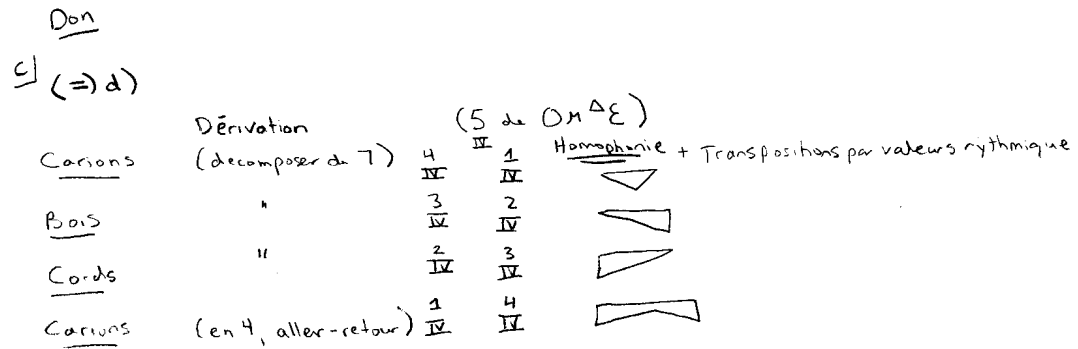 Don
c) (=) d)
Dérivation (5 de OM^Δ Σ)
IV
Carions (decomposer du 7) 4/IV 1/IV Homophonie + Transpositions par valeurs rythmique
Bois " 3/IV 2/IV
Cords " 2/IV 3/IV
Carions (en 4, aller-retour) 1/IV 4/IV